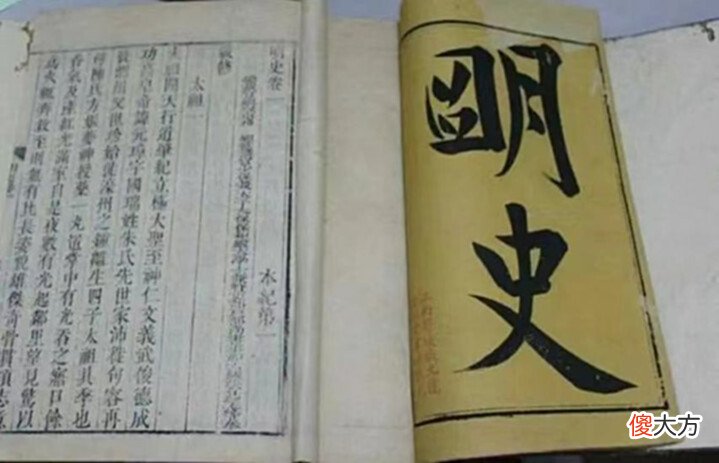 明史
明史卷一
本紀第一
敕修
太祖一
太祖開天行道肇紀立極大聖至神仁文義武俊德成
功高皇帝諱元璋字國瑞姓朱氏先世家沛徙句容再
徙泗州父世珍始徙濠州之鍾離生四子太祖其季也
母陳氏方娠夢神授藥一丸置掌中有光吞之寤口餘
香氣及產紅光滿室自是夜數有光起鄰里望見驚以
為火輒奔救至則無有比長姿貌雄傑奇骨貫頂志意
傻大方